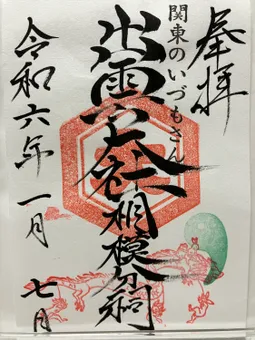 奉拝
関東のいづもさん
出雲大社相模分祠
令和六年 一月 七日